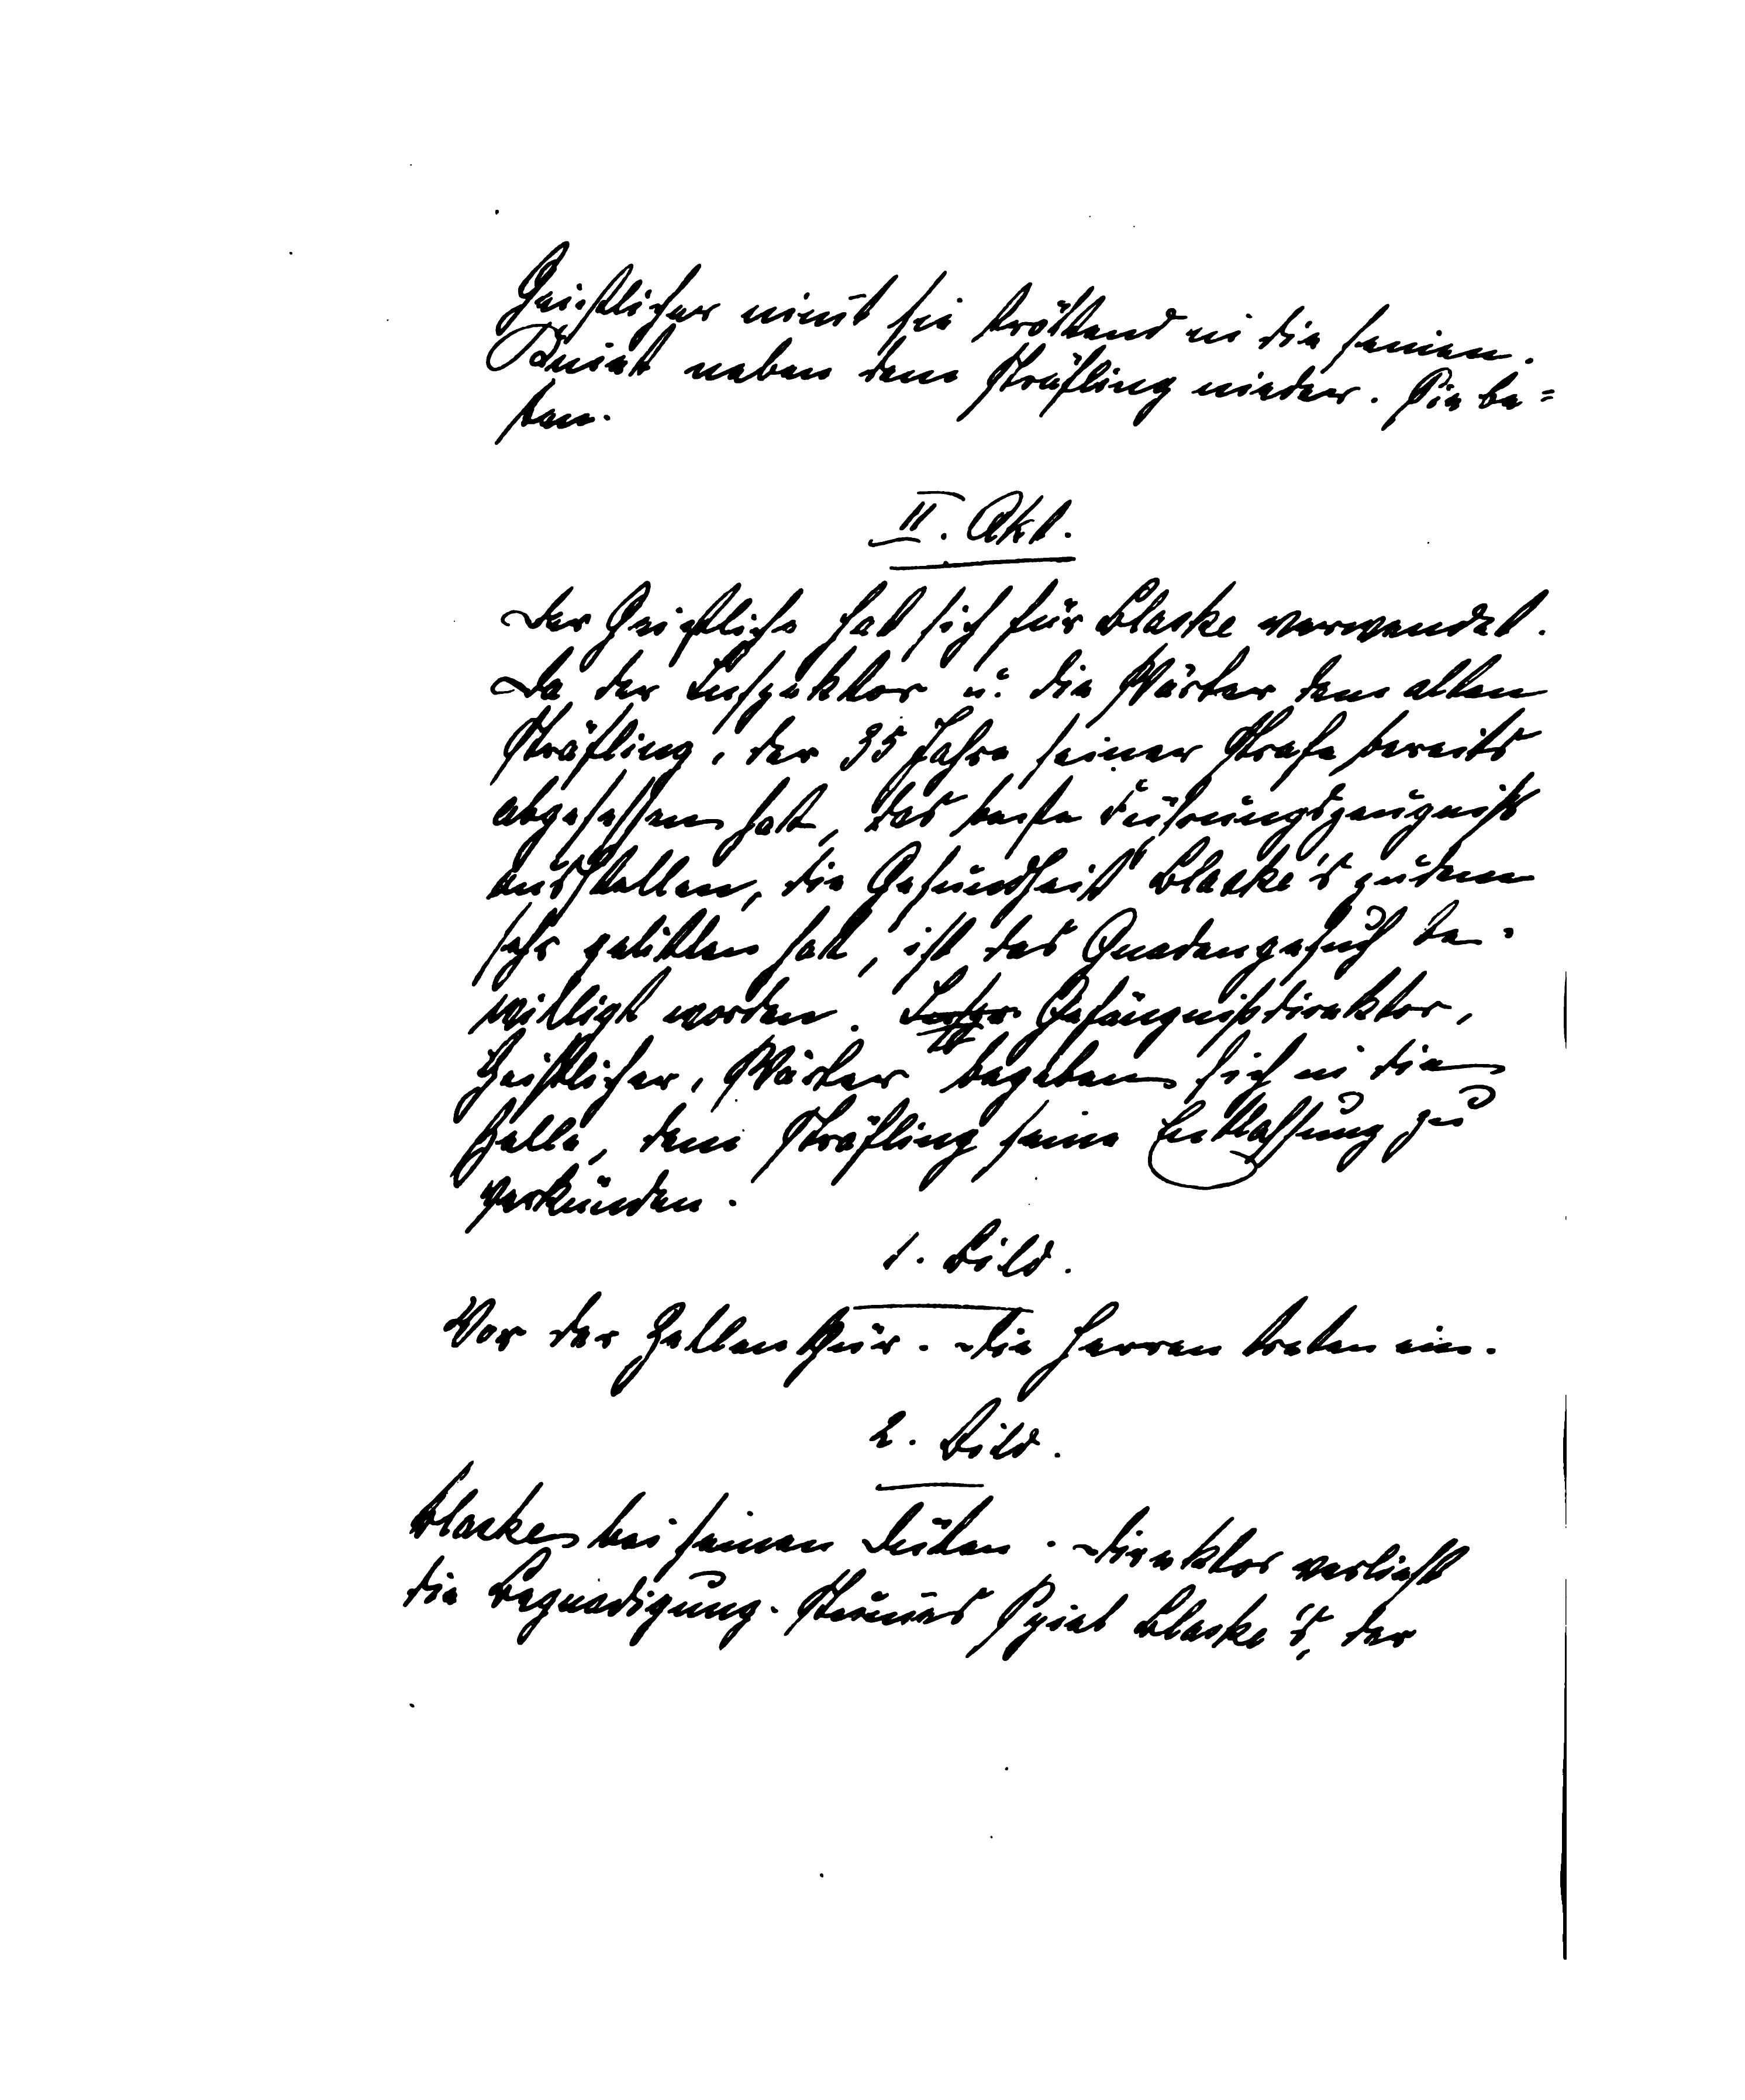 Geistlicher nim̅t sie tröstend in die seinen.
Kniet neben dem Sträfling nieder. Sie be=
ten.
II. Akt.
Der Geistliche hat sich für Blaske verwendet.
Da der Inspektor u. die Wärter dem alten
Sträfling, der 35 Jahre seiner Strafe bereits
abgesessen hat, das beste Führungszeugniß
ausstellen, die Gesundheit Blaske's zudem
sehr gelitten hat, ist das Gnadengesuch be-
willigt worden. Gefängnißdirektor,
Geistlicher, Wärter begeben sich in die
Zelle, dem Sträfling seine Entlassung zu
verkünden.
1. Bild.
Vor der Zellenthür. Die Herren treten ein.
2. Bild.
Blaske bei seinen Düten. Direktor verließt
die Begnadigung. Stum̅es Spiel Blaske's, der